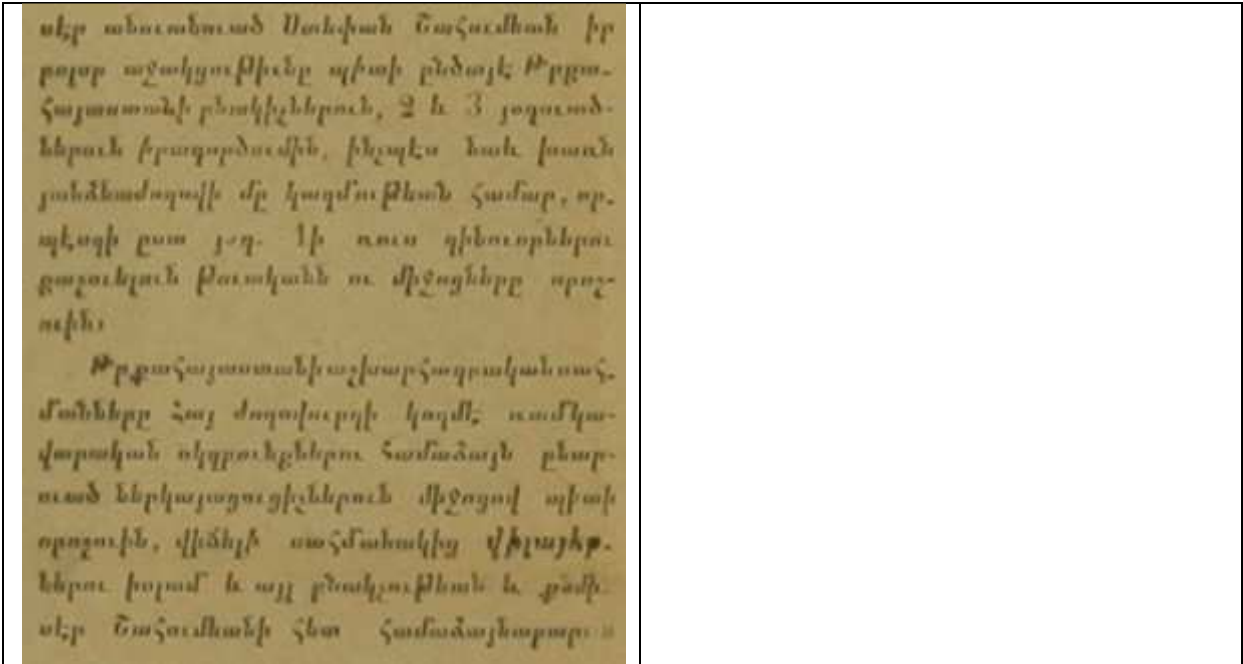 սէր անուանուած Ստեփան Շահումեան իր
բոլոր աջակցութիւնը պիտի ընծայէ Թրքա-
Հայաստանի բնակիչներուն, 2 և 3 յօդուած-
ներուն իրագործումին, ինչպէս նաև խառն
յանձնաժողովի մը կազմութեան համար, որ-
պէսզի ըստ յօդ. 1ի ռուս զինուորներու
քաշուելուն թուականն ու միջոցները որոշ-
ուին։
Թրքահայաստանի աշխարհագրական սահ-
մանները հայ ժողովուրդի կողմէ ռամկա-
վարական սկզբունքներու համաձայն ընտր-
ուած ներկայացուցիչներուն միջոցով պիտի
որոշուին, վիճելի սահմանակից վիլայէթ-
ներու խըլամ և այլ բնակչութեան և քօմի-
սէր Շահումեանի հետ համաձայնաբար։